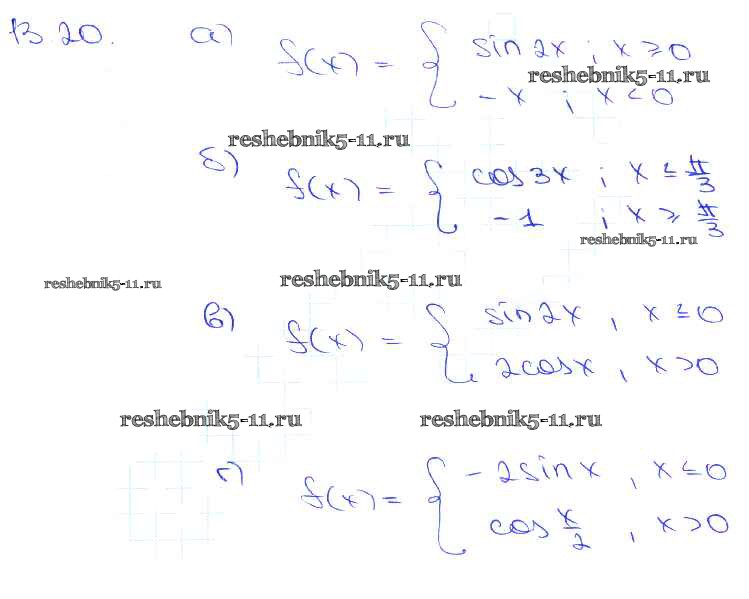 13.20. а) f(x) = { sin2x ; x ≥ 0
reshebnik5-11.ru
-x ; x < 0
reshebnik5-11.ru
б) f(x) = { cos3x ; x ≤ π/3
-1 ; x ≥ π/3
reshebnik5-11.ru
reshebnik5-11.ru
reshebnik5-11.ru
в) f(x) = { sin2x , x ≤ 0
2cosx , x > 0
reshebnik5-11.ru
reshebnik5-11.ru
г) f(x) = { -2sinx , x ≤ 0
cos x/2 , x > 0